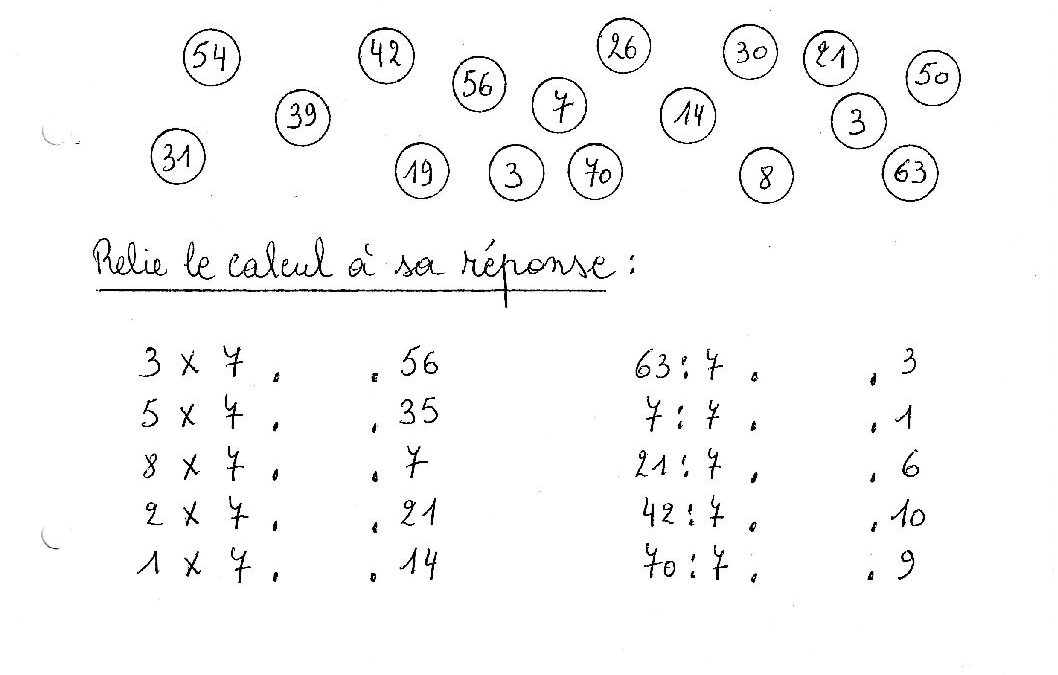 54 42 56 26 30 21 50
39 7 14 3
31 19 3 70 8 63
Relie le calcul à sa réponse :
3 x 7 . . 56 63 : 7 . . 3
5 x 7 . . 35 7 : 7 . . 1
8 x 7 . . 7 21 : 7 . . 6
2 x 7 . . 21 42 : 7 . . 10
1 x 7 . . 14 70 : 7 . . 9